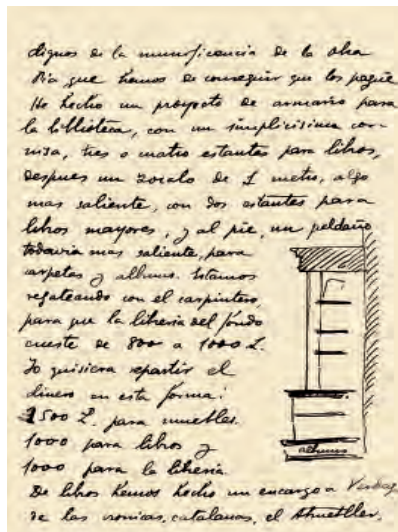 dignos de la munificencia de la obra
Pía que hemos de conseguir que los pague
He hecho un proyecto de armario para
la biblioteca, con un simplicisima cor-
nisa, tres o cuatro estantes para libros,
despues un zocalo de 1 metro, algo
mas saliente, con dos estantes para
libros mayores, y al pie, un peldaño
todavia mas saliente, para
carpetas y albums. Estamos
regateando con el carpintero,
para que la libreria del fondo
cueste de 800 a 1000 L.
Yo quisiera repartir el
dinero en esta forma:
1500 L. para muebles.
1000 para libros y
1000 para la libreria.
De libros hemos hecho un encargo a
de las cronicas, catalanas, el
albums